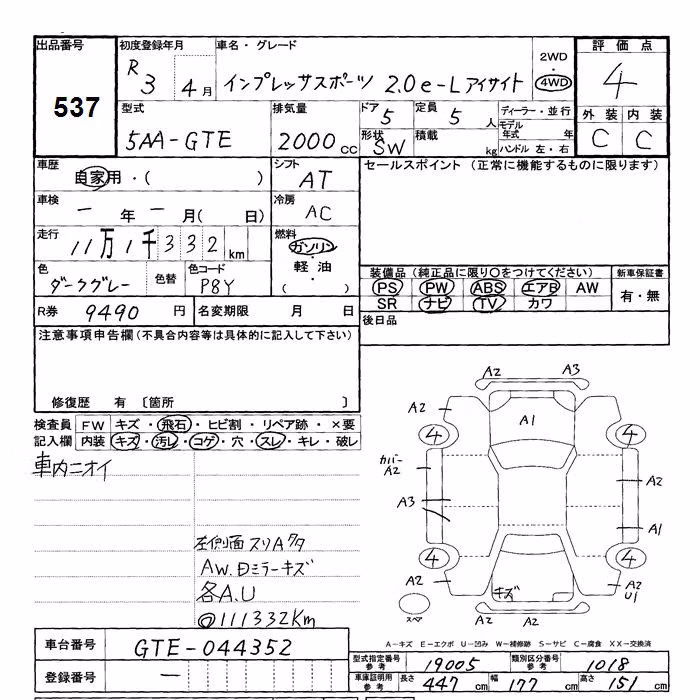 出品番号
537
初度登録年月
R 3 4月
車名・グレード
インプレッサスポーツ 2.0e-Lアイサイト
2WD
4WD
評価点
4
外装 内装
C C
型式
5AA-GTE
排気量
2000cc
ドア
5
形状
SW
定員
5人
積載
kg
ディーラー・並行
モデル年式 年
ハンドル 左・右
車歴
自家用・( )
シフト
AT
セールスポイント (正常に機能するものに限ります)
車検
ー年ー月( 日)
冷房
AC
走行
11万1千332km
燃料
ガソリン
・
軽油
( )
色
ダークグレー
色替
色コード
P8Y
装備品 (純正品に限り○をつけてください)
新車保証書
PS PW ABS エアB AW
有・無
SR ナビ TV カワ
R券
9490円
名変期限 月 日
後日品
注意事項申告欄(不具合内容等は具体的に記入して下さい)
修復歴 有 〔箇所 〕
検査員
記入欄
FW キズ・飛石・ヒビ割・リペア跡・×要
内装 キズ・汚レ・コゲ・穴・スレ・キレ・破レ
車内ニオイ
左側面スリAクタ
AW.Dミラーキズ
各A.U
@111332Km
A2 A3
A2
A1
4 4
カバー
A2
A2
A3
A1
4 4
A2
キズ
A2
U1
スペア
A2 A2
A-キズ E-エクボ U-凹み W-補修跡 S-サビ C-腐食 XX-交換済
車台番号
GTE-044352
登録番号
ー
型式指定番号
参考
19005
類別区分番号
参考
1018
車庫証明用
参考
長さ 447cm
幅 177cm
高さ 151cm